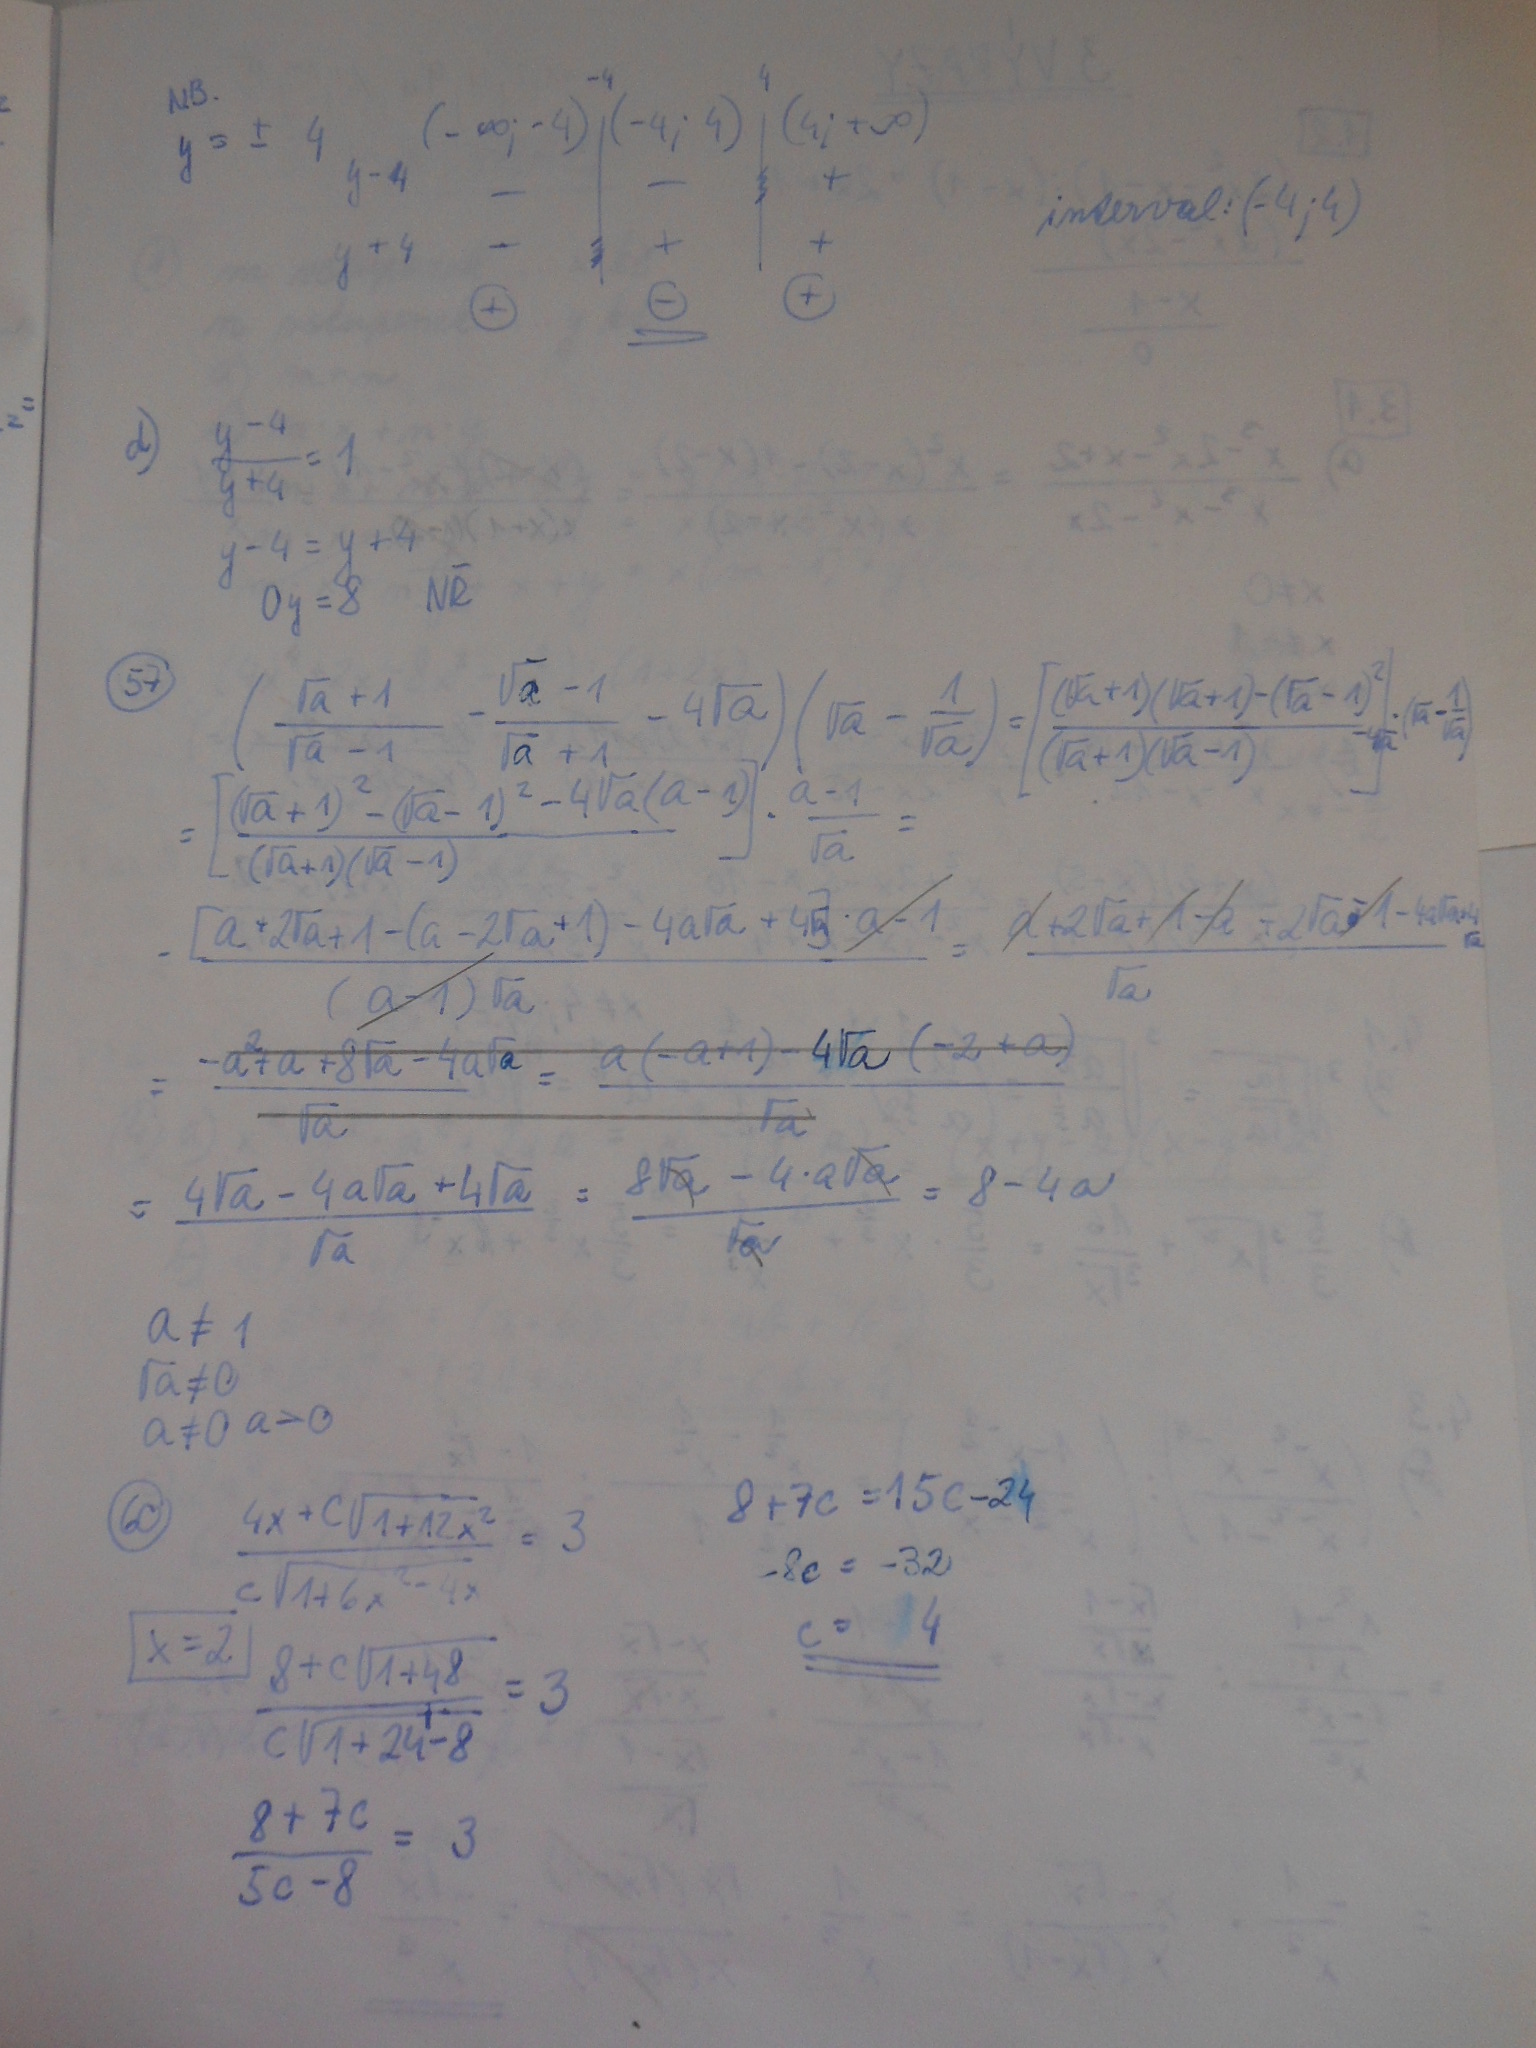 NB.
y = ± 4 (-∞; -4) -4 (-4; 4) 4 (4; +∞)
y-4 - - +
interval: (-4; 4)
y+4 - + +
+ - +
d) y-4 / y+4 = 1
y-4 = y+4
0y = 8 NŘ
57 ( (√a+1)/(√a-1) - (√a-1)/(√a+1) - 4√a ) ( √a - 1/√a ) = [ ((√a+1)(√a+1)-(√a-1)²) / ((√a+1)(√a-1)) - 4√a ] · (√a - 1/√a)
= [ ((√a+1)² - (√a-1)² - 4√a(a-1)) / ((√a+1)(√a-1)) ] · (a-1)/√a =
- [a+2√a+1-(a-2√a+1)-4a√a+4√a] · a-1 / (a-1)√a = a+2√a+1-a+2√a-1-4a√a+4√a / √a
= -a²+a+8√a-4a√a / √a = a(-a+1)-4√a(-2+a) / √a
= 4√a-4a√a+4√a / √a = 8√a-4·a√a / √a = 8-4a
a ≠ 1
√a ≠ 0
a ≠ 0 a > 0
4x+c√1+12x² / c√1+6x²-4x = 3
x=2
8+c√1+48 / c√1+24-8 = 3
8+7c / 5c-8 = 3
8+7c = 15c-24
-8c = -32
c = 4